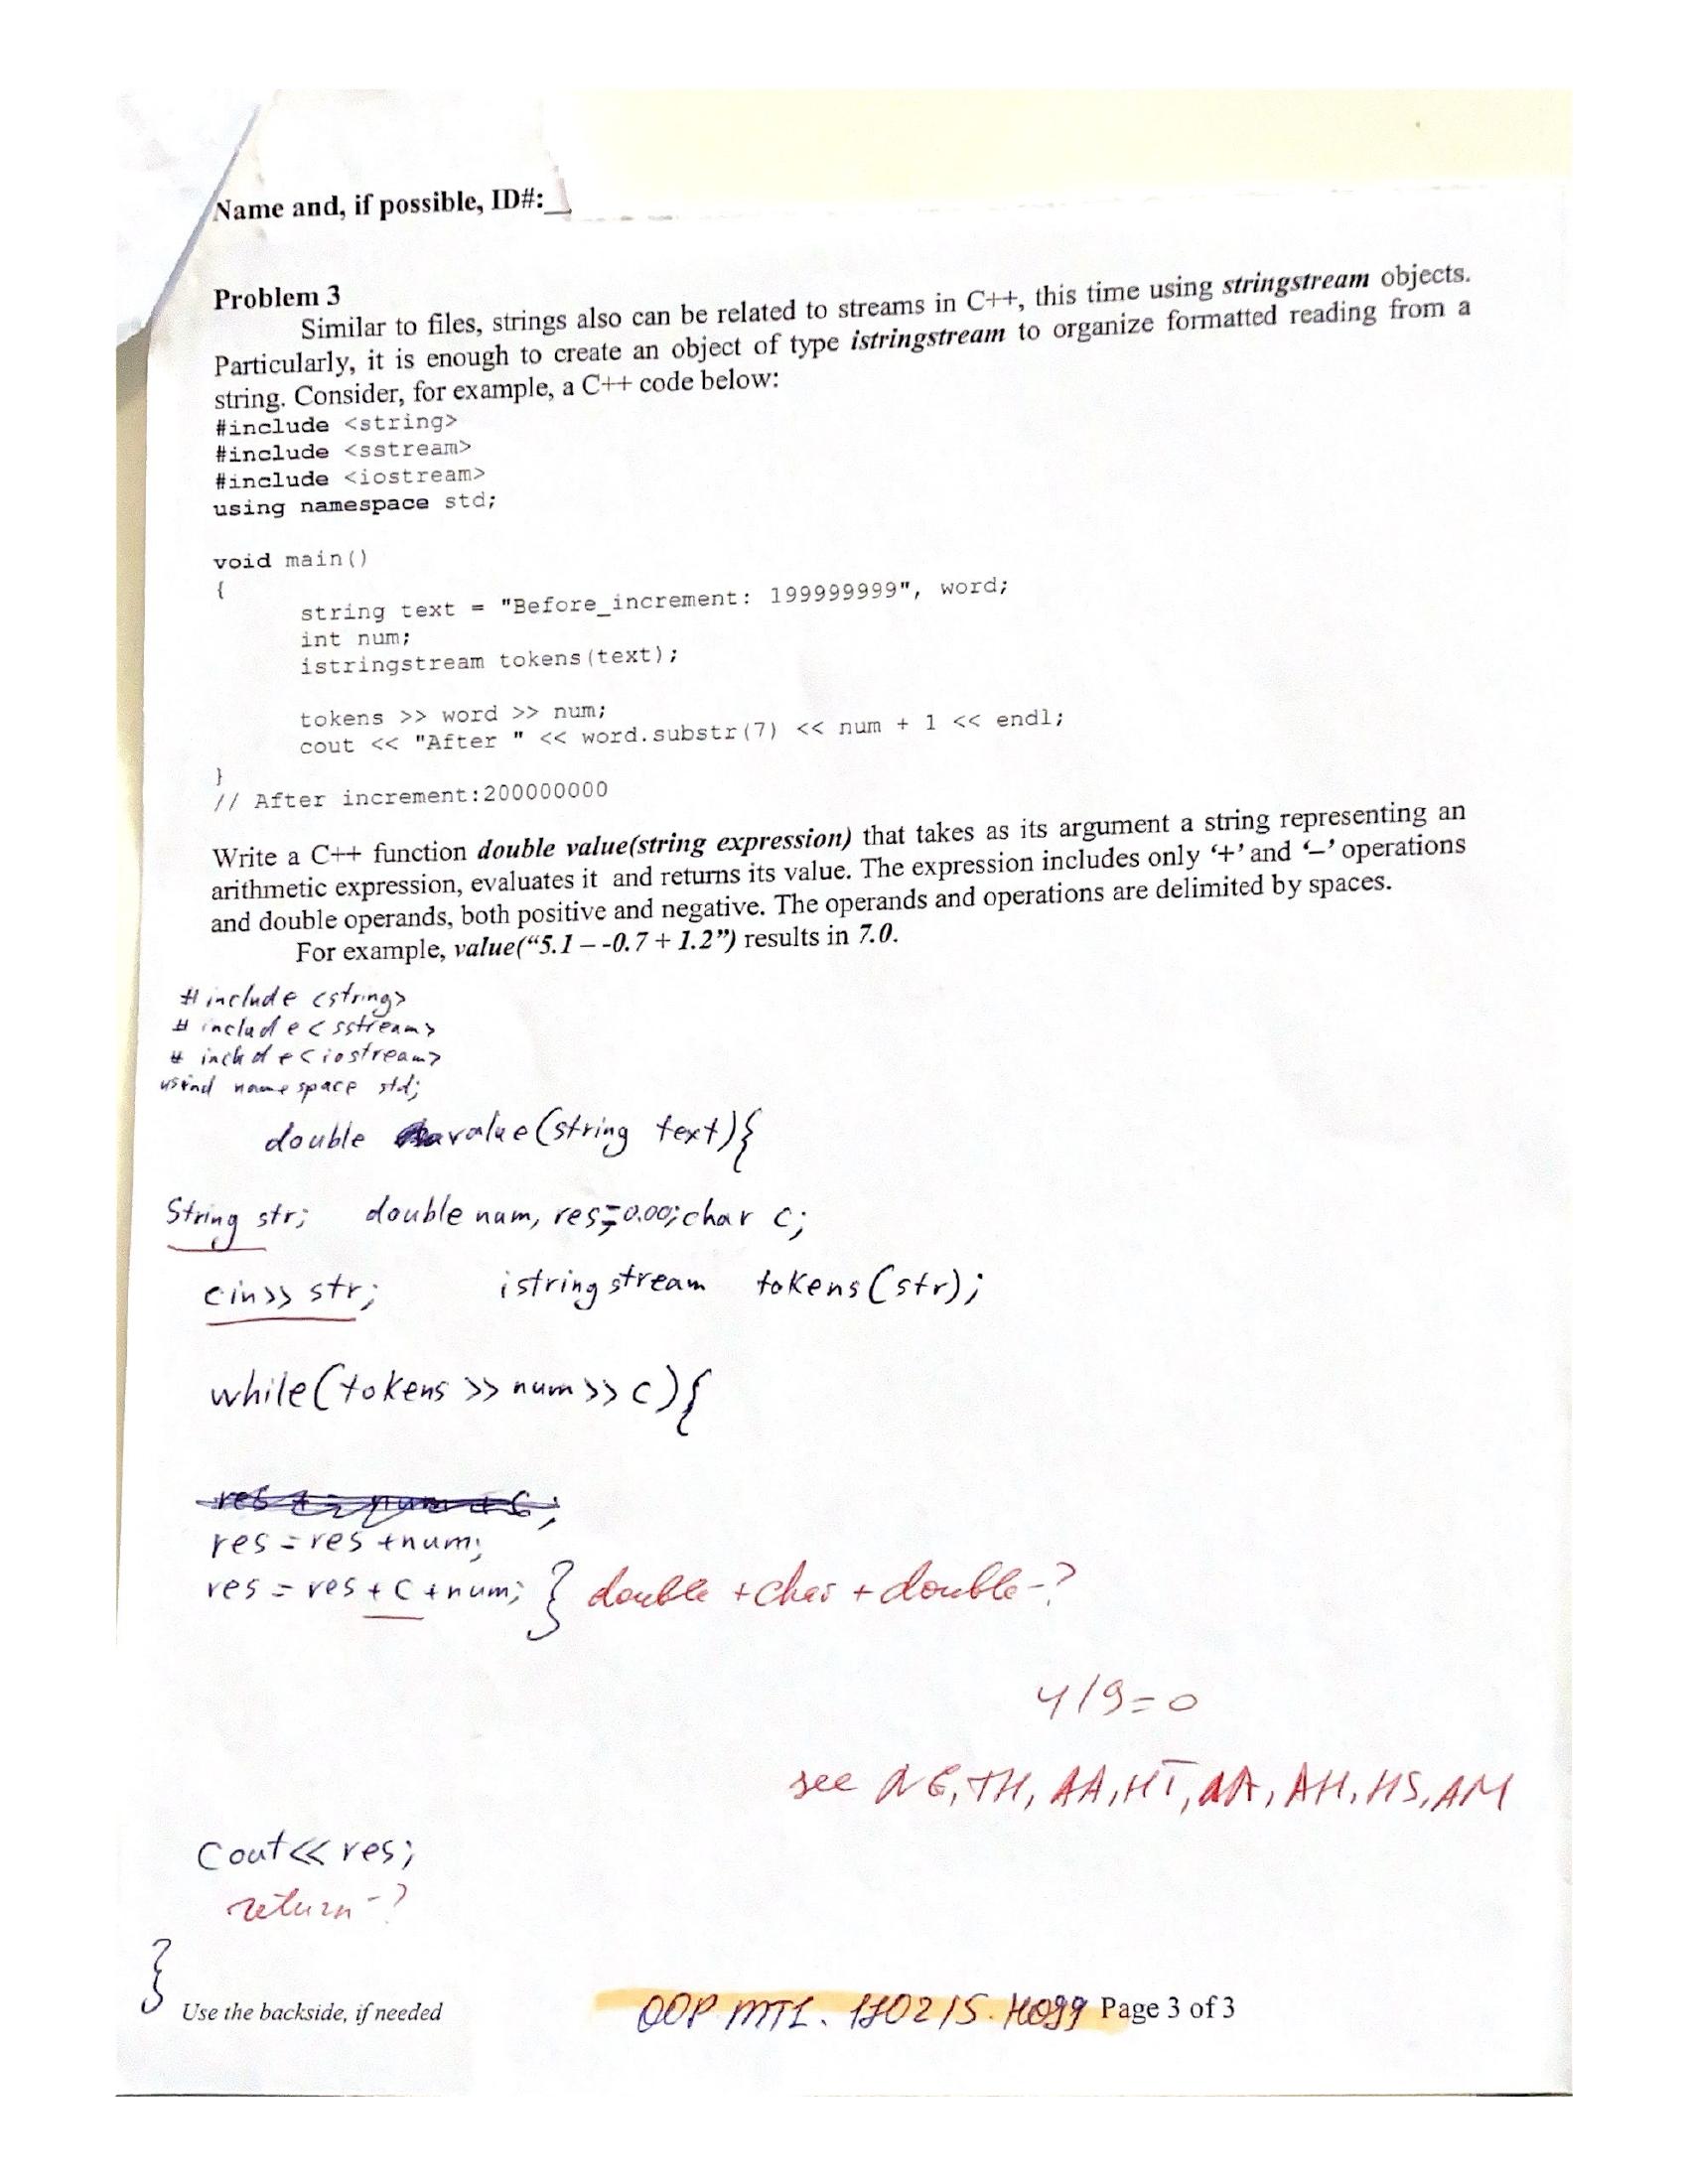 Name and, if possible, ID#:
Problem 3
Similar to files, strings also can be related to streams in C++, this time using stringstream objects.
Particularly, it is enough to create an object of type istringstream to organize formatted reading from a
string. Consider, for example, a C++ code below:
#include <string>
#include <sstream>
#include <iostream>
using namespace std;
void main()
{
string text = "Before_increment: 199999999", word;
int num;
istringstream tokens(text);
tokens >> word >> num;
cout << "After " << word.substr(7) << num + 1 << endl;
}
// After increment:200000000
Write a C++ function double value(string expression) that takes as its argument a string representing an
arithmetic expression, evaluates it and returns its value. The expression includes only ‘+’ and ‘–’ operations
and double operands, both positive and negative. The operands and operations are delimited by spaces.
For example, value(“5.1 – -0.7 + 1.2”) results in 7.0.
#include <string>
#include <sstream>
#include <iostream>
usind namespace std;
double value(string text){
String str; double num, res=0.00; char c;
cin>> str; istringstream tokens(str);
while(tokens >> num >> c){
res = res +num;
res = res + c +num; } double + char + double -?
4/9=0
see NG, TH, AA, HT, AA, AH, HS, AM
Cout<< res;
return -?
}
Use the backside, if needed
OOP MT1. 170215. Page 3 of 3